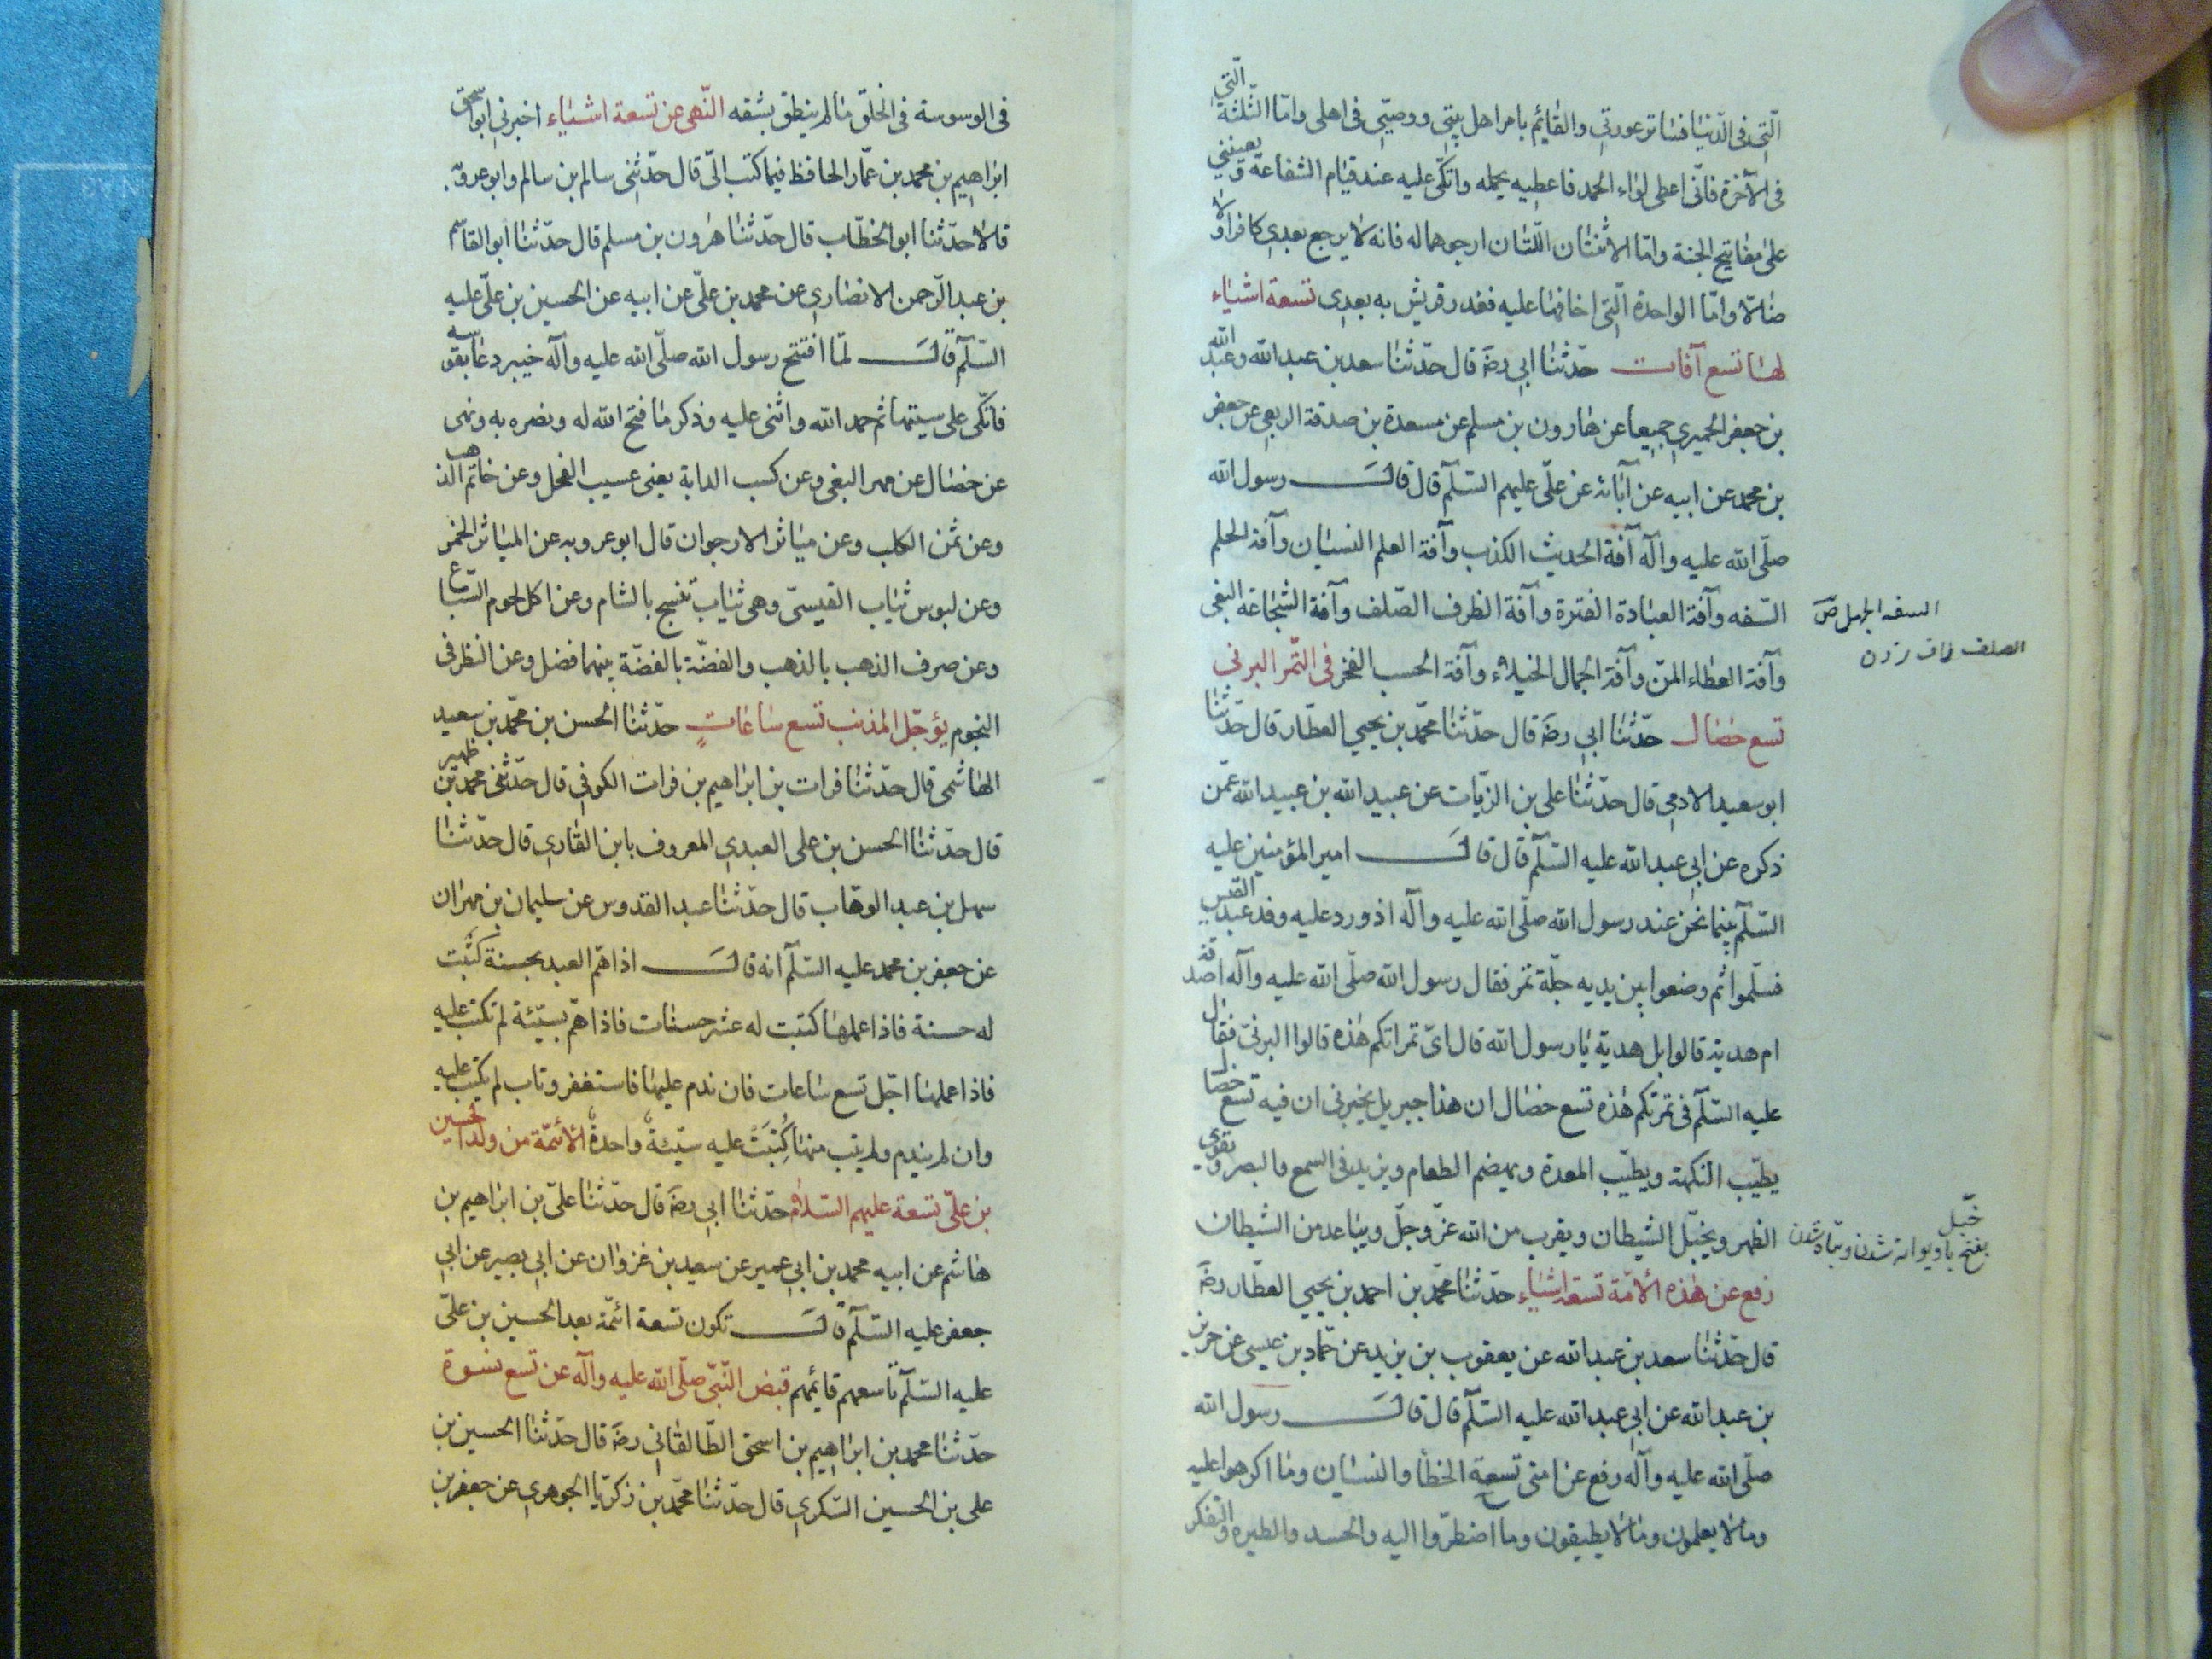 الّتى فى الدّنيا فساتر عورتى والقائم بامر اهل بيتى ووصيّى فى اهلى وامّا الثّلثة الّتى
فى الآخرة فانّى اعطى لواء الحمد فاعطيه يحمله واتّكى عليه عند قيام الشفاعة ويعيننى
على مفاتيح الجنة وامّا الاثنتان اللّتان ارجوهما له فانه لا يرجع بعدى كافرا ولا
ضالّا وامّا الواحدة الّتى اخافها عليه فغدر قريش به بعدى تسعة اشياء
لها تسع آفات حدّثنا ابى رضه قال حدّثنا سعد بن عبد الله وعبد الله
بن جعفر الحميرى جميعا عن هارون بن مسلم عن مسعدة بن صدقة الربعى عن جعفر
بن محمد عن ابيه عن آبائه عن علّى عليهم السّلم قال قال رسول الله
صلّى الله عليه وآله آفة الحديث الكذب وآفة العلم النسيان وآفة الحلم
السّفه وآفة العبادة الفترة وآفة الظرف الصّلف وآفة الشجاعة البغى
السفه الجهل ص
الصلف لاف زدن
وآفة العطاء المنّ وآفة الجمال الخيلاء وآفة الحسب الفخر فى التّمر البرنى
تسع خصال حدّثنا ابى رضه قال حدّثنا محمّد بن يحيى العطّار قال حدّثنا
ابو سعيد الادمى قال حدّثنا على بن الزيّات عن عبيد الله بن عبيد الله عمّن
ذكره عن ابى عبد الله عليه السّلم قال قال امير المؤمنين عليه
السّلم بينما نحن عند رسول الله صلّى الله عليه وآله اذ ورد عليه وفد عبد القيس
فسلّموا ثم وضعوا بين يديه جلّة تمر فقال رسول الله صلّى الله عليه وآله اصدقة
ام هدية قالوا بل هديّة يا رسول الله قال اىّ تمراتكم هذه قالوا البرنىّ فقال
عليه السّلم فى تمرتكم هذه تسع خصال ان هذا جبريل يخبرنى ان فيه تسع خصال
يطيّب النكهة ويطيّب المعدة ويهضم الطعام ويزيد فى السمع والبصر ويقوى
الظهر ويخبّل الشيطان ويقرب من الله عزّ وجلّ ويباعد من الشيطان
خبّل
بفتح با ديوانه شدن وتباه شدن
رفع عن هذه الامّة تسعة اشياء حدّثنا محمّد بن احمد بن يحيى العطّار رضه
قال حدّثنا سعد بن عبد الله عن يعقوب بن يزيد عن حمّاد بن عيسى عن حريز
بن عبد الله عن ابى عبد الله عليه السّلم قال قال رسول الله
صلّى الله عليه وآله رفع عن امتى تسعة الخطأ والنسيان وما اكرهوا عليه
وما لا يعلمون وما لا يطيقون وما اضطرّوا اليه والحسد والطيره والتفكر
فى الوسوسة فى الخلق ما لم ينطق بشفه النّهى عن تسعة اشياء اخبرنى ابو اسحق
ابراهيم بن محمد بن عمّار الحافظ فيما كتب الىّ قال حدّثنى سالم بن سالم وابو عروبه
قالا حدّثنا ابو الخطّاب قال حدّثنا هرون بن مسلم قال حدّثنا ابو القاسم
بن عبد الرّحمن الانصارى عن محمد بن علّى عن ابيه عن الحسين بن علّى عليه
السّلم قال لمّا افتتح رسول الله صلّى الله عليه وآله خيبر دعا بقوسه
فاتّكى على سيتها ثم حمد الله واثنى عليه وذكر ما فتح الله له ونصره به ونهى
عن خصال عن مهر البغى وعن كسب الدابة يعنى عسيب الفحل وعن خاتم الذهب
وعن ثمن الكلب وعن مياثر الارجوان قال ابو عروبه عن المياثر الخمر
وعن لبوس ثياب القيسىّ وهى ثياب تنسج بالشام وعن اكل لحوم السّباع
وعن صرف الذهب بالذهب والفضّة بالفضّة بينهما فضل وعن النظر فى
النجوم يؤجّل المذنب تسع ساعاتٍ حدّثنا الحسن بن محمّد بن سعيد
الهاشمى قال حدّثنا فرات بن ابراهيم بن فرات الكوفى قال حدّثنى محمد بن ظهير
قال حدّثنا الحسن بن على العبدى المعروف بابن القارى قال حدّثنا
سهل بن عبد الوهّاب قال حدّثنا عبد القدوس عن سليمان بن مهران
عن جعفر بن محمد عليه السّلم انه قال اذا همّ العبد بحسنة كتبت
له حسنة فاذا عملها كتبت له عشر حسنات فاذا همّ بسيّئة لم تكتب عليه
فاذا عملها اجّل تسع ساعات فان ندم عليها فاستغفر وتاب لم يكتب عليه
وان لم يندم ولم يتب منها كُتِبَتْ عليه سيّئةً واحدةً الائمّة من ولد الحسين
بن علّى تسعة عليهم السّلام حدّثنا ابى رضه قال حدّثنا علّى بن ابراهيم بن
هاشم عن ابيه محمد بن ابى عمير عن سعيد بن غزوان عن ابى بصير عن ابى
جعفر عليه السّلم قال تكون تسعة ائمّة بعد الحسين بن علّى
عليه السّلم تاسعهم قائمهم قبض النّبىّ صلّى الله عليه وآله عن تسع نسوة
حدّثنا محمد بن ابراهيم بن اسحق الطّالقانى رضه قال حدّثنا الحسين بن
على بن الحسين السّكرى قال حدّثنا محمّد بن زكريّا الجوهرى عن جعفر بن